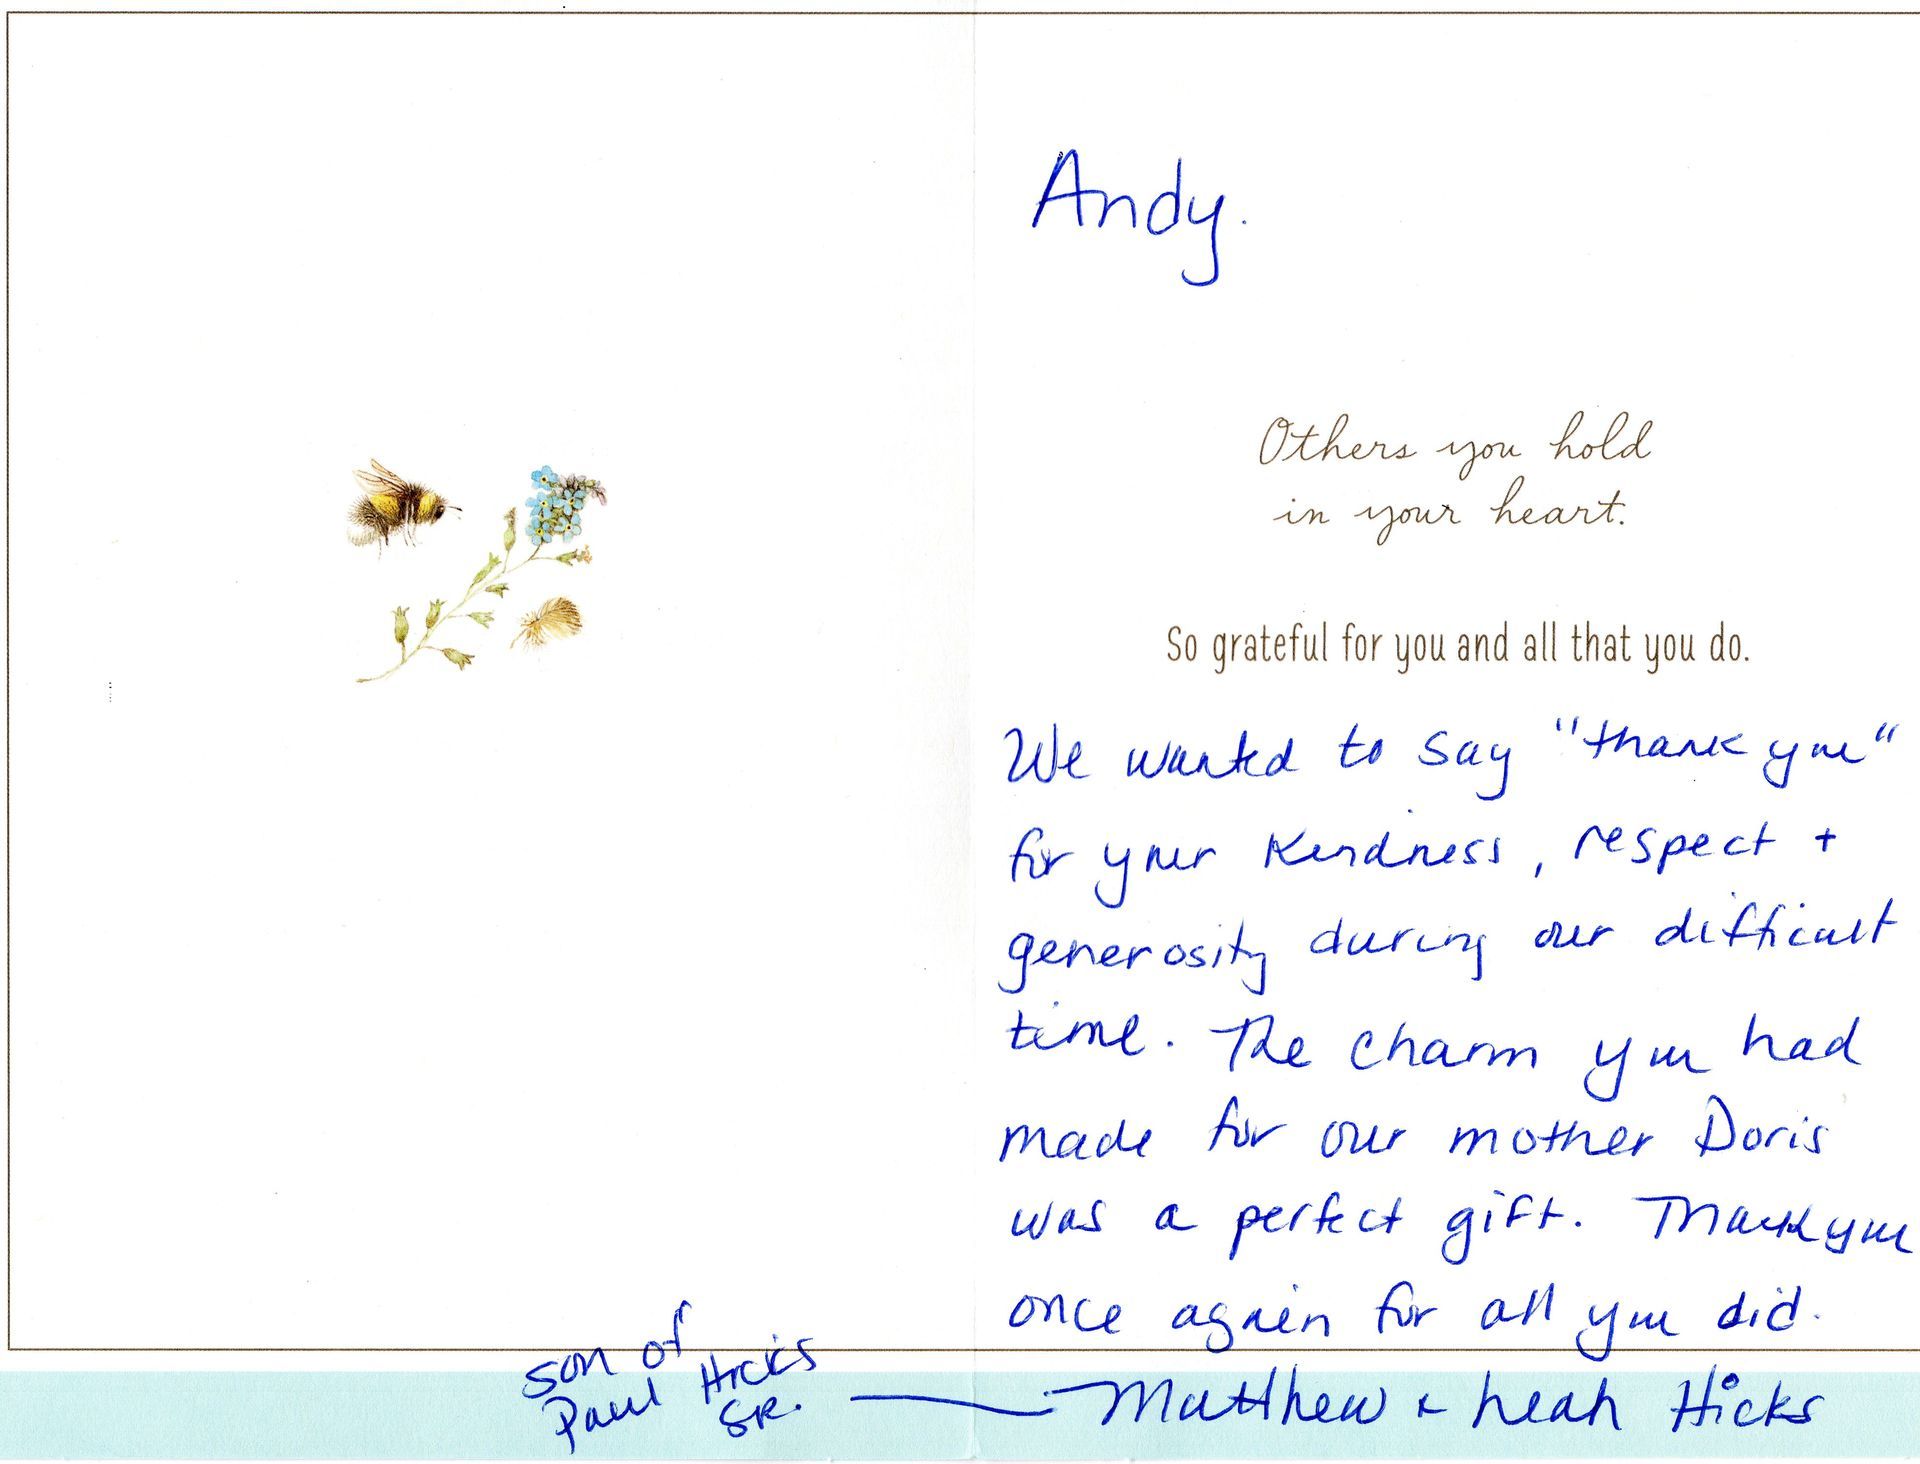 Andy.
Others you hold
in your heart.
So grateful for you and all that you do.
We wanted to say "thank you"
for your kindness, respect +
generosity during our difficult
time. The charm you had
made for our mother Doris
was a perfect gift. Thank you
once again for all you did.
Matthew + Leah Hicks
son of
Paul Hicks
SR.